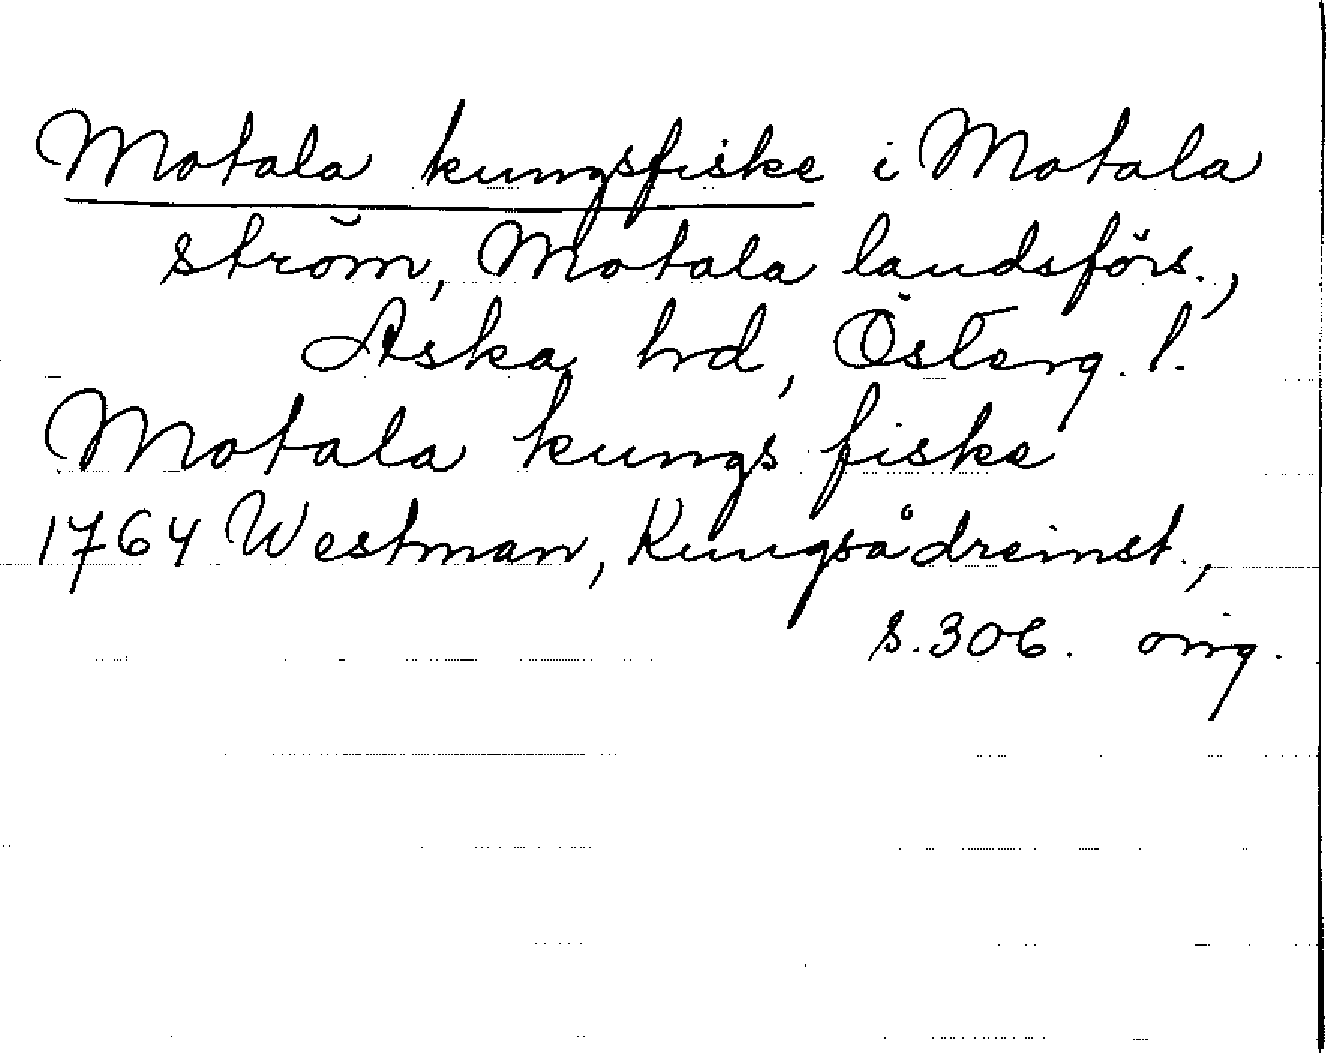 Motala kungsfiske i Motala
ström, Motala landsförs.,
Aska hd, Österg. l.
Motala kungs fiske
1764 Westman, Kungsådreinst.,
s. 306. orig.